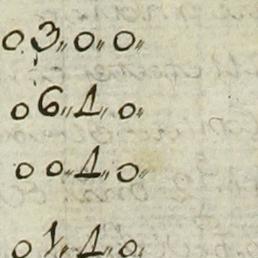 03„0„0„
06„1„0„
00„1„0„
01„1„0„